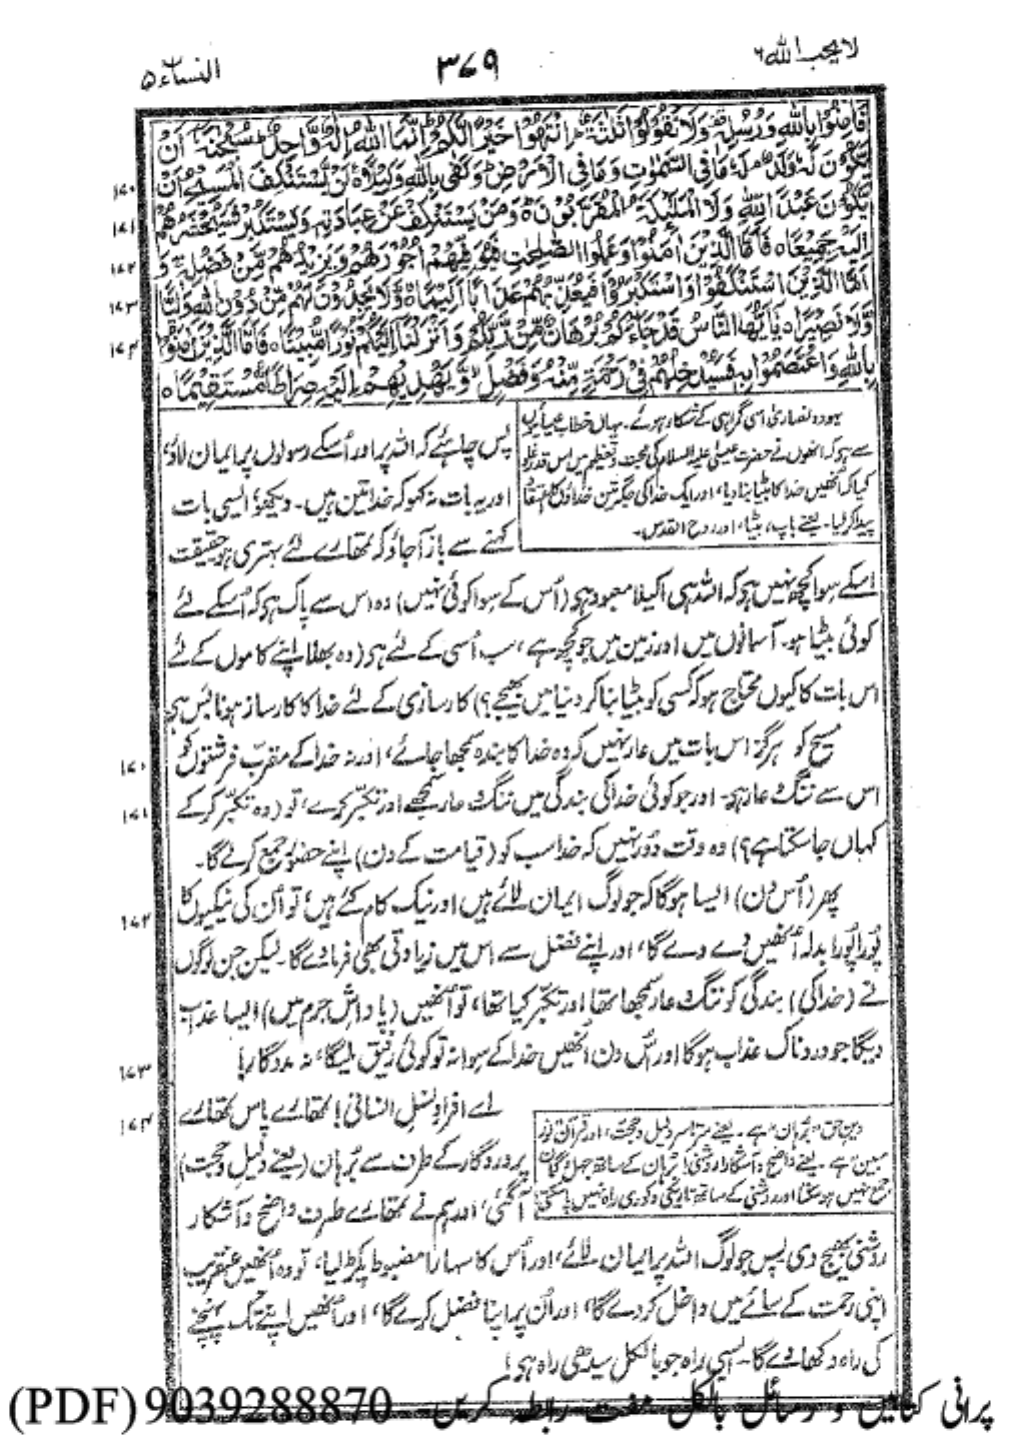 لا یحب اللہ ٦
٣٦٩
النساء ۵
فَاٰمِنُوْا بِاللّٰهِ وَرُسُلِهٖ وَلَا تَقُوْلُوْا ثَلٰثَةٌ اِنْتَهُوْا خَيْرًا لَّكُمْ اِنَّمَا اللّٰهُ اِلٰهٌ وَّاحِدٌ سُبْحٰنَهٗٓ اَنْ
يَّكُوْنَ لَهٗ وَلَدٌ لَهٗ مَا فِي السَّمٰوٰتِ وَمَا فِي الْاَرْضِ وَكَفٰى بِاللّٰهِ وَكِيْلًا ۝ لَنْ يَّسْتَنْكِفَ الْمَسِيْحُ اَنْ
١٧٠
يَّكُوْنَ عَبْدًا لِّلّٰهِ وَلَا الْمَلٰٓئِكَةُ الْمُقَرَّبُوْنَ وَمَنْ يَّسْتَنْكِفْ عَنْ عِبَادَتِهٖ وَيَسْتَكْبِرْ فَسَيَحْشُرُهُمْ
١٧١
اِلَيْهِ جَمِيْعًا ۝ فَاَمَّا الَّذِيْنَ اٰمَنُوْا وَعَمِلُوا الصّٰلِحٰتِ فَيُوَفِّيْهِمْ اُجُوْرَهُمْ وَيَزِيْدُهُمْ مِّنْ فَضْلِهٖ وَ
١٧٢
اَمَّا الَّذِيْنَ اسْتَنْكَفُوْا وَاسْتَكْبَرُوْا فَيُعَذِّبُهُمْ عَذَابًا اَلِيْمًا ۝ وَّلَا يَجِدُوْنَ لَهُمْ مِّنْ دُوْنِ اللّٰهِ وَلِيًّا
١٧٣
وَّلَا نَصِيْرًا ۝ يٰٓاَيُّهَا النَّاسُ قَدْ جَآءَكُمْ بُرْهَانٌ مِّنْ رَّبِّكُمْ وَاَنْزَلْنَآ اِلَيْكُمْ نُوْرًا مُّبِيْنًا ۝ فَاَمَّا الَّذِيْنَ اٰمَنُوْا
١٧۴
بِاللّٰهِ وَاعْتَصَمُوْا بِهٖ فَسَيُدْخِلُهُمْ فِيْ رَحْمَةٍ مِّنْهُ وَفَضْلٍ وَّيَهْدِيْهِمْ اِلَيْهِ صِرَاطًا مُّسْتَقِيْمًا ۝
یہود و نصاریٰ اسی گمراہی کے شکار ہوئے۔ یہاں خطاب عیسائیوں
سے ہے کہ انھوں نے حضرت عیسیٰ علیہ السلام کی محبت و تعظیم میں اس قدر غلو
کیا کہ انھیں خدا کا بیٹا بنا دیا، اور ایک خدا کی جگہ تین خداؤں کا اعتقاد
پیدا کرلیا۔ یعنے باپ، بیٹا، اور روح القدس۔
پس چاہئے کہ اللہ پر اور اُسکے رسولوں پر ایمان لاؤ،
اور یہ بات نہ کہو کہ خدا تین ہیں۔ دیکھو، ایسی بات
کہنے سے باز آجاؤ کہ تمھارے لئے بہتری ہو حقیقت
اسکے سوا کچھ نہیں ہے کہ اللہ ہی اکیلا معبود ہے (اُس کے سوا کوئی نہیں) وہ اس سے پاک ہے کہ اُسکے لئے
کوئی بیٹا ہو۔ آسمانوں میں اور زمین میں جو کچھ ہے، سب اُسی کے لئے ہے (وہ بھلا اپنے کاموں کے لئے
اس بات کا کیوں محتاج ہو کہ کسی کو بیٹا بنا کر دنیا میں بھیجے؟) کارسازی کے لئے خدا کا کارساز ہونا بس ہے
مسیح کو ہرگز اس بات میں عار نہیں کہ وہ خدا کا بندہ سمجھا جائے، اور نہ خدا کے مقرب فرشتوں کو
١٧٠
اس سے ننگ و عار ہے۔ اور جو کوئی خدا کی بندگی میں ننگ و عار سمجھے اور تکبر کرے، تو (وہ تکبر کرکے
١٧١
کہاں جاسکتا ہے؟) وہ وقت دُور نہیں کہ خدا سب کو (قیامت کے دن) اپنے حضور جمع کرلے گا۔
پھر (اُس دن) ایسا ہوگا کہ جو لوگ ایمان لائے ہیں اور نیک کام کئے ہیں، تو اُن کی نیکیوں کا
١٧٢
پُورا پُورا بدلہ اُنھیں دے دے گا، اور اپنے فضل سے اس میں زیادتی بھی فرمائے گا۔ لیکن جن لوگوں
نے (خدا کی) بندگی کو ننگ و عار سمجھا تھا اور تکبر کیا تھا، تو اُنھیں (پاداش جرم میں) ایسا عذاب
دیگا جو دردناک عذاب ہوگا اور اُس دن اُنھیں خدا کے سوا نہ تو کوئی رفیق ملیگا، نہ مددگار!
١٧٣
اے افراد نسلِ انسانی! تمھارے پاس تمھارے
١٧۴
دین حق "بُرہان" ہے۔ یعنے سرتاسر دلیل و حجت، اور قرآن "نور
مبین" ہے۔ یعنے واضح و آشکارا روشنی۔ بُرہان کے ساتھ جہل و گمان
جمع نہیں ہوسکتا اور روشنی کے ساتھ تاریکی و کوری راہ نہیں پاسکتی
پروردگار کے طرف سے بُرہان (یعنے دلیل و حجت)
آگئی، اور ہم نے تمھارے طرف واضح و آشکار
روشنی بھیج دی پس جو لوگ اللہ پر ایمان لائے، اور اُس کا سہارا مضبوط پکڑ لیا، تو وہ اُنھیں عنقریب
اپنی رحمت کے سائے میں داخل کردے گا، اور اُن پر اپنا فضل کرے گا، اور اُنھیں اپنے تک پہنچنے
کی راہ دکھا دے گا۔ ایسی راہ جو بالکل سیدھی راہ ہو!
پرانی کتابیں و رسائل بالکل مفت رابطہ کریں۔ 9039288870 (PDF)